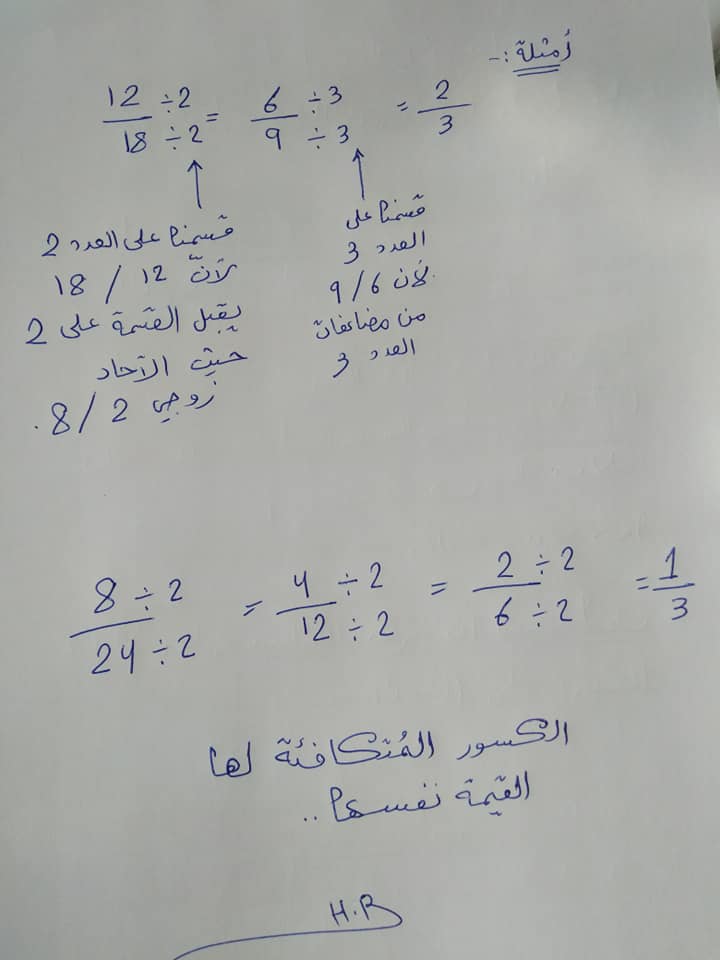 أمثلة :-
12 ÷2 = 6 ÷3 = 2
18 ÷2 9 ÷3 3
قسمنا على العدد 2
لأنّ 12 / 18
يقبل القسمة على 2
حيث الآحاد
زوجي 2 / 8.
قسمنا على
العدد 3
لأن 6/9
من مضاعفات
العدد 3
8 ÷2 = 4 ÷2 = 2 ÷2 = 1
24 ÷2 12 ÷2 6 ÷2 3
الكسور المُتكافئة لها
القيمة نفسها..
H.R